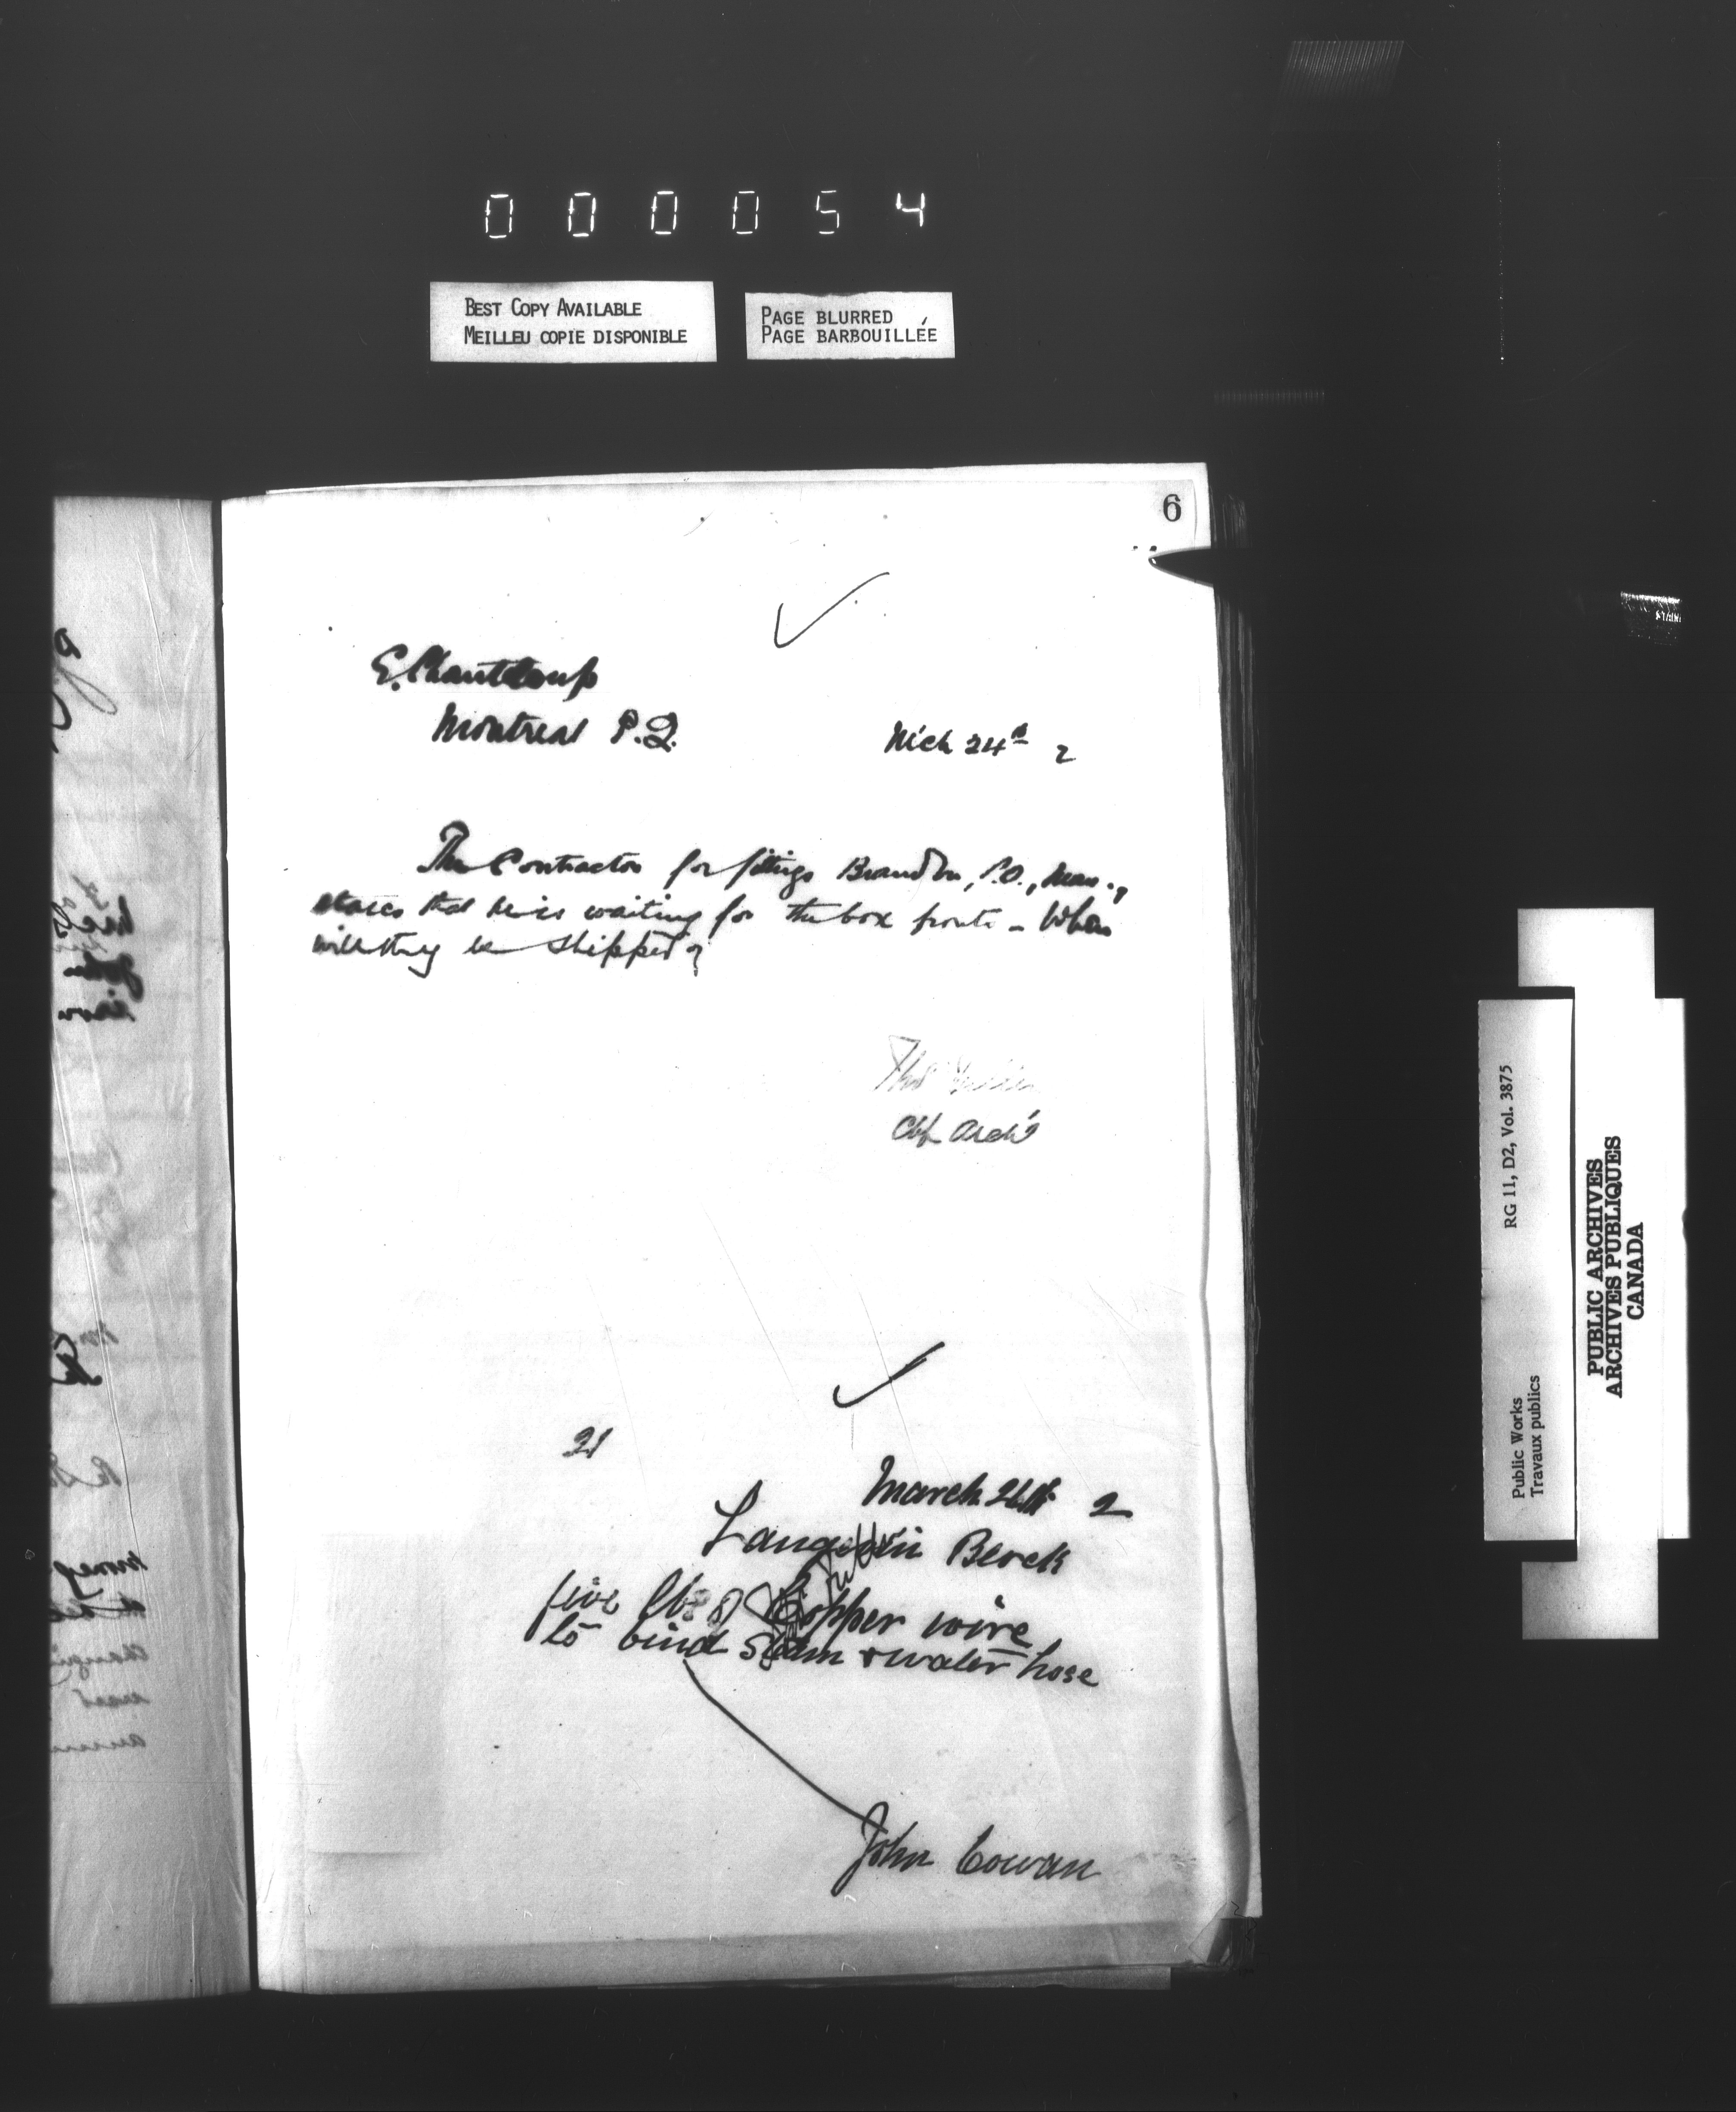 000054
BEST COPY AVAILABLE
MEILLEU COPIE DISPONIBLE
PAGE BLURRED
PAGE BARBOUILLÉE
6
E. Chanteloup
Montreal P.Q.
Mch 24th 2
The Contractor for fittings Brandon, P.O., Man.,
states that he is waiting for the box fronts - When
will they be shipped?
Chf Archt
21
March 24th 2
Langevin Block
five lbs of Copper wire
to bind steam & water hose
John Cowan
RG 11, D2, Vol. 3875
Public Works
Travaux publics
PUBLIC ARCHIVES
ARCHIVES PUBLIQUES
CANADA